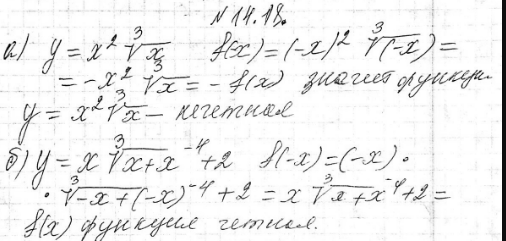 № 14.18.
а) y = x² ∛x f(x) = (-x)² ∛(-x) =
= -x² ∛x = - f(x) значит функция
y = x² ∛x – нечетная
б) y = x ∛x+x⁻⁴+2 f(-x) = (-x) ·
· ∛-x+(-x)⁻⁴+2 = x ∛x+x⁻⁴+2 =
f(x) функция четная.